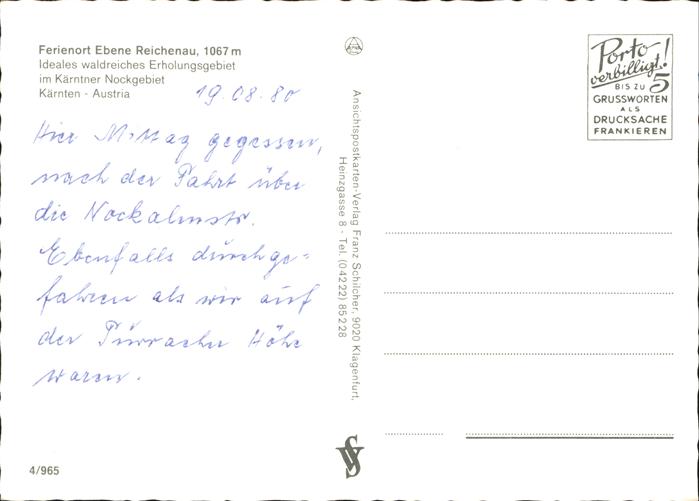 Ferienort Ebene Reichenau, 1067 m
Ideales waldreiches Erholungsgebiet
im Kärntner Nockgebiet
Kärnten - Austria
19.08.80
Hier Mittag gegessen,
nach der Fahrt über
die Nockalmstr.
Ebenfalls durchge=
fahren als wir auf
der Turracher Höhe
waren.
4/965
Ansichtspostkarten-Verlag Franz Schilcher, 9020 Klagenfurt,
Heinzgasse 8 - Tel. (04222) 85228
Porto
verbilligt!
BIS ZU 5
GRUSSWORTEN
ALS
DRUCKSACHE
FRANKIEREN